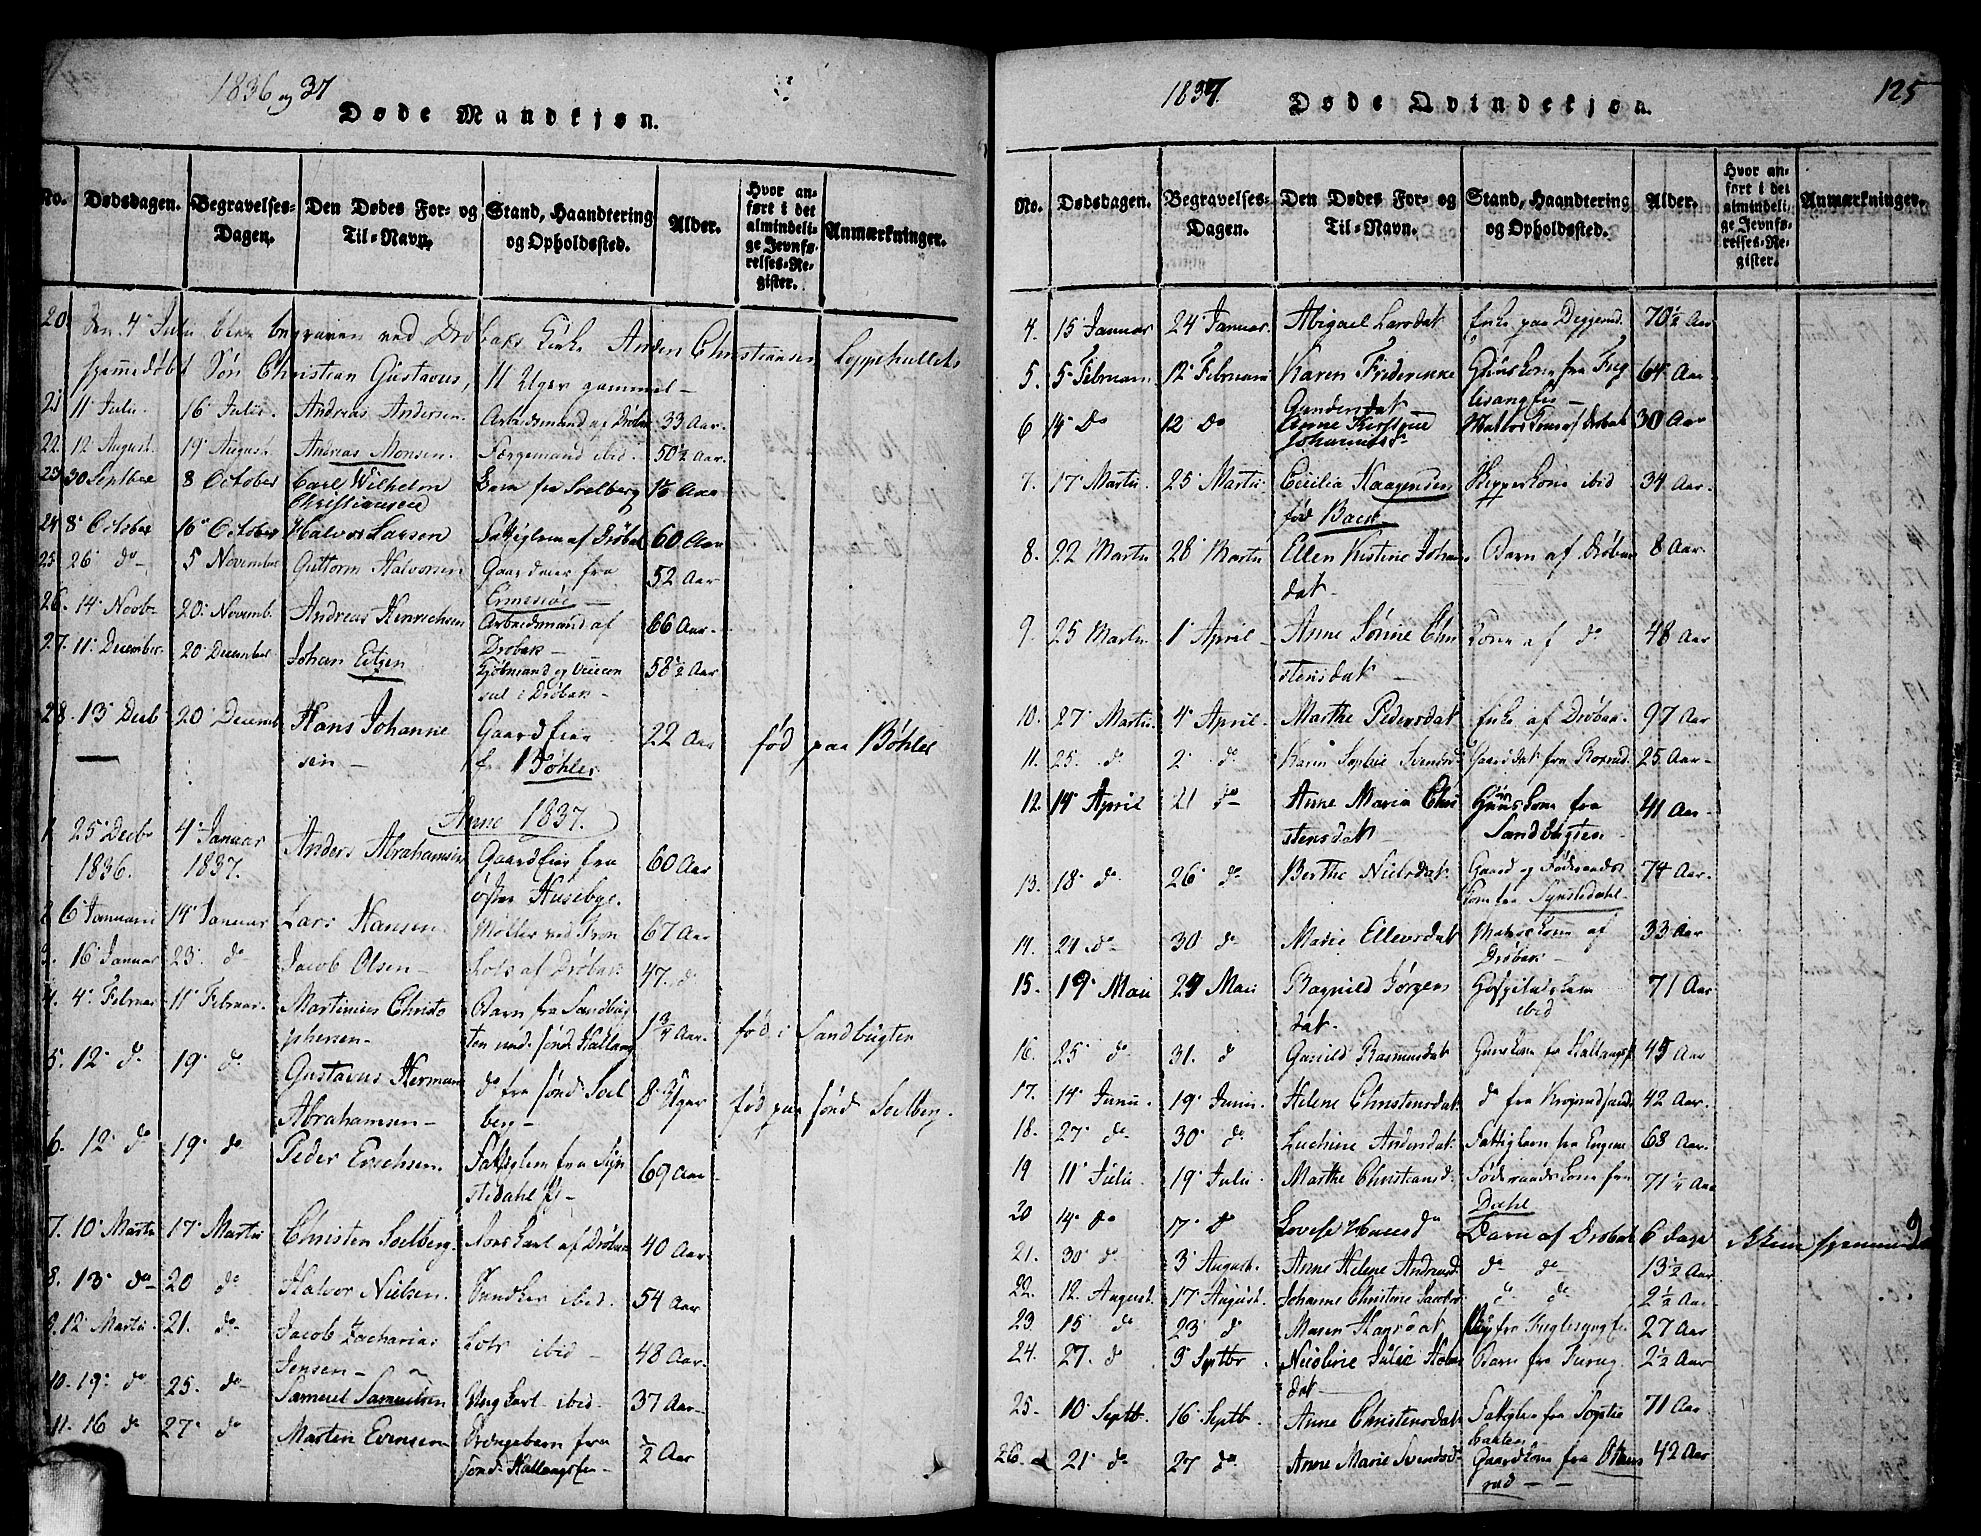 1836 og 37
Døde Mandkjøn.
No. Dødsdagen. Begravelses-Dagen. Den Dødes For- og Til-Navn. Stand, Haandtering og Opholdssted. Alder. Hvor anført i det almindelige Jevnførelses-Register. Anmærkninger.
20. den 4 Juli blev begraven ved Drøbaks Kirke Anders Christiansen Loppehullets
hjemmedøbt Søn Christian Gustavus, 11 Uger gammel —
21 11 Juli. 16 Julii. Andreas Andersen. Arbeidsmand af Drøbak 33 Aar.
22. 12 August. 19 August Andreas Monsen. Færgemand ibid. 50½ Aar.
23 30 Septbr 8 October Carl Wilhelm
Christiansen
Barn fra Soelberg
24 8 October 16 October Halvor Larsen Fattiglem af Drøbak 60 Aar
25 26 do 5 November Guttorm Halvorsen Gaardeier fra
52 Aar
26. 14 Novbr 20. Novemb. Andreas Henrichsen Arbeidsmand af
Drøbak —
66 Aar.
27. 11 December. 20 December Johan Eitzen Kjøbmand og Vicecon
sul i Drøbak —
58½ Aar
28. 13 Decb 20 Decemb Hans Johanne
sen —
Gaardfeier
fr Bøhler
22 Aar født paa Bøhler
Anno 1837.
1. 25 Decbr
1836.
4 Januar
1837.
Anders Abrahamsen Gaardfeier fra
østre Husebye.
60 Aar
2 6 Januarii 14 Januar Lars Hansen Møller ved 67 Aar
3. 16 Januar 23. do Jacob Olsen — Lots af Drøbak 47. d
4. 4 Februar 11 Februar. Martinius Christo
phersen —
Barn fra Sandbug
ten under søndr Hallang
1¾ Aar. fød i Sandbugten
5. 12 do 19 d Gustavus Herman
Abrahamsen —
do fra sønd Soel
berg —
8 Uger fød paa sønd Soelberg.
6. 12 do 19 do Peder Erichsen. Fattiglem fra Syn
stedahl
69 Aar
7. 10 Martii 17 Martii Christen Soelberg. af Drøbak 40 Aar
8. 13 do 20 do Halvor Nielsen. Snedker ibid. 54 Aar
9. 12 Martii. 21. do Jacob Zacharias
Jensen —
Lots ibid — 48 Aar.
10. 19 do 25. do Samuel Samuelsen Ung Karl ibid. 37 Aar
11. 16 do 27 do Morten Evensen Drengebarn fra
sønd. Hallangs
½ Aar
1837.
Døde Qvindekjøn.
125
No. Dødsdagen. Begravelses-Dagen. Den Dødes For- og Til-Navn. Stand, Haandtering og Opholdssted. Alder. Hvor anført i det almindelige Jevnførelses-Register. Anmærkninger.
4. 15 Januar 24 Januar. Abigael Larsdat Enke paa Deggerud. 70½ Aar
5. 5 Februari 12 Februari Karen Friderikke
Gundersdat
Huuskone fra
64 Aar
6 14 Do 12 Do Anne Kirstine
Johannesd
Matros Kone af Drøbak 30 Aar
7. 17 Martii. 25 Martii. Cecilia Haagensen
fød Back
Skipperkone ibid 34 Aar.
8. 22 Martii 28 Martii Ellen Kistine Johans
dat.
Barn af Drøbak 8 Aar.
9. 25 Martii 1 April — Anne Sønne Chri
stensdat —
Kone af do 48 Aar
10. 27 Martii. 4 April. Marthe Pedersdat Enke af Drøbak. 97 Aar
11. 25. d 2 do Karen Sophie Svendsd Gaarddat fra Roxrud 25 Aar
12. 14 April 21 do Anne Maria Chri
stensdat
Huuskone fra
Sandbugten
41 Aar
13. 18 d 26 do Berthe Nielsdat Gaard og Føderaads
Kone fra Synstedahl
74 Aar.
14. 21 do 30 do Marie Ellevsdat Matroskone af
Drøbak
33 Aar
15. 19 Maii 29 Maii Ragnild Jørgens
dat.
Hospitalslem
ibid
71 Aar
16. 25 d 31. d Gunild Rasmusdat Huuskone fr 45 Aar
17. 14 Junii. 19 Junii. Helene Christensdat do fra 42 Aar.
18. 27 do 30 do Luchine Andersdat Fattiglem fra 68 Aar.
19 11 Julii 19 Julii Marthe Christiansd. Føderaadskone fra
Dahl
71¼ Aar
20 14 do 17 D Lovise d Barn af Drøbak 6 Dage
21. 30 d 3 August. Anne Helene Andreasd. do do 13½ Aar
22. 12. August. 17 August. Johanne Christine Jacobsd d do 2½ Aar
23. 15 d 23 d Maren 27 Aar
24. 27. d 3 Septbr. Nicoline Julie
dat —
Barn fra 2½ Aar
25. 10 Septb. 16 Septb Anne Christensdat Fattiglem fra
71 Aar
26. 21 do 27 do Anne Marie Svendsd Gaardkone fra Ottars
rud —
42 Aar